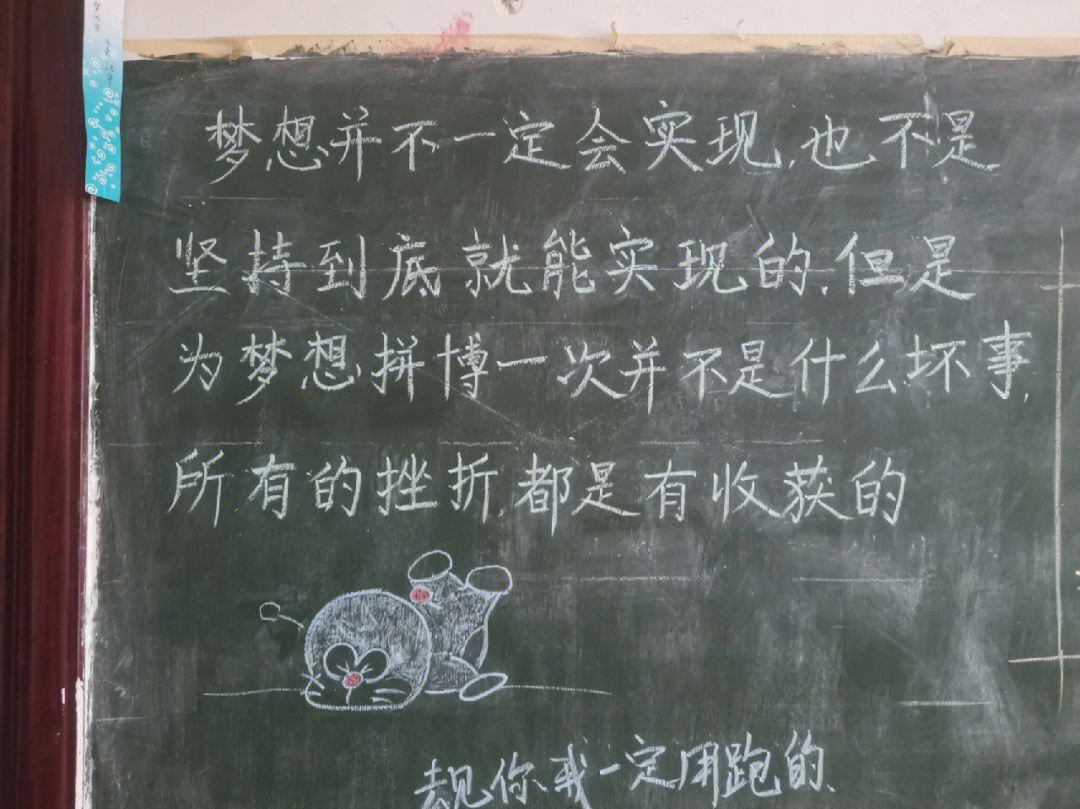 梦想并不一定会实现,也不是
坚持到底就能实现的,但是
为梦想拼博一次并不是什么坏事,
所有的挫折,都是有收获的
去见你我一定用跑的